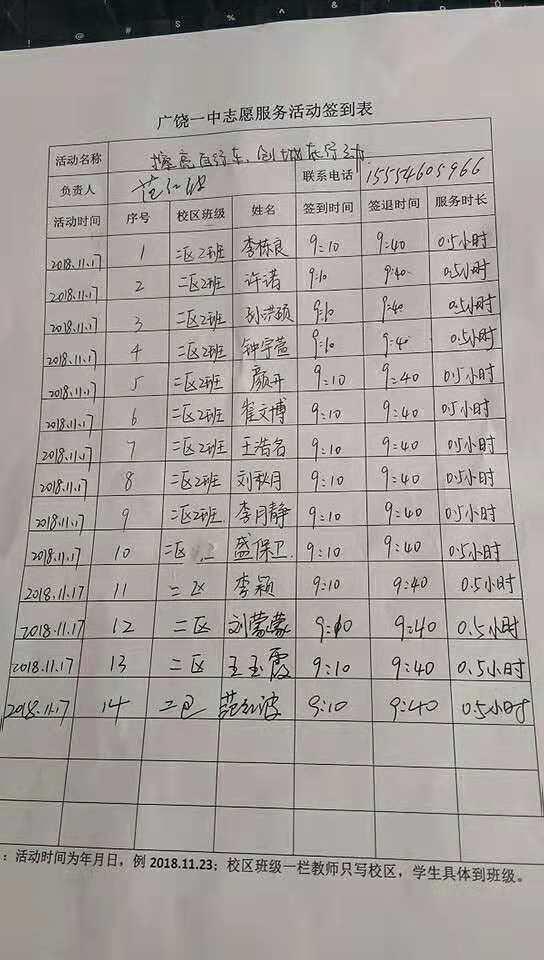 广饶一中志愿服务活动签到表
活动名称 擦亮自行车,创城在行动
负责人 范红波 联系电话 15554605966
活动时间 序号 校区班级 姓名 签到时间 签退时间 服务时长
2018.11.17 1 二区2班 李栋良 9:10 9:40 0.5小时
2018.11.17 2 二区2班 许诺 9:10 9:40 0.5小时
2018.11.17 3 二区2班 孙洪硕 9:10 9:40 0.5小时
2018.11.17 4 二区2班 钟宇萱 9:10 9:40 0.5小时
2018.11.17 5 二区2班 颜开 9:10 9:40 0.5小时
2018.11.17 6 二区2班 崔文博 9:10 9:40 0.5小时
2018.11.17 7 二区2班 王浩名 9:10 9:40 0.5小时
2018.11.17 8 二区2班 刘秋月 9:10 9:40 0.5小时
2018.11.17 9 二区2班 李月静 9:10 9:40 0.5小时
2018.11.17 10 二区 盛保卫 9:10 9:40 0.5小时
2018.11.17 11 二区 李颖 9:10 9:40 0.5小时
2018.11.17 12 二区 刘蒙蒙 9:10 9:40 0.5小时
2018.11.17 13 二区 王玉霞 9:10 9:40 0.5小时
2018.11.17 14 二区 范红波 9:10 9:40 0.5小时
:活动时间为年月日,例 2018.11.23;校区班级一栏教师只写校区,学生具体到班级。